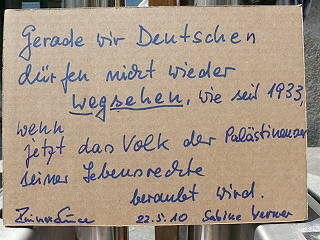 Gerade wir Deutschen
dürfen nicht wieder
wegsehen, wie seit 1933,
wenn
jetzt das Volk der Palästinenser
seiner Lebensrechte
beraubt wird.
22.5.10 Sabine Werner